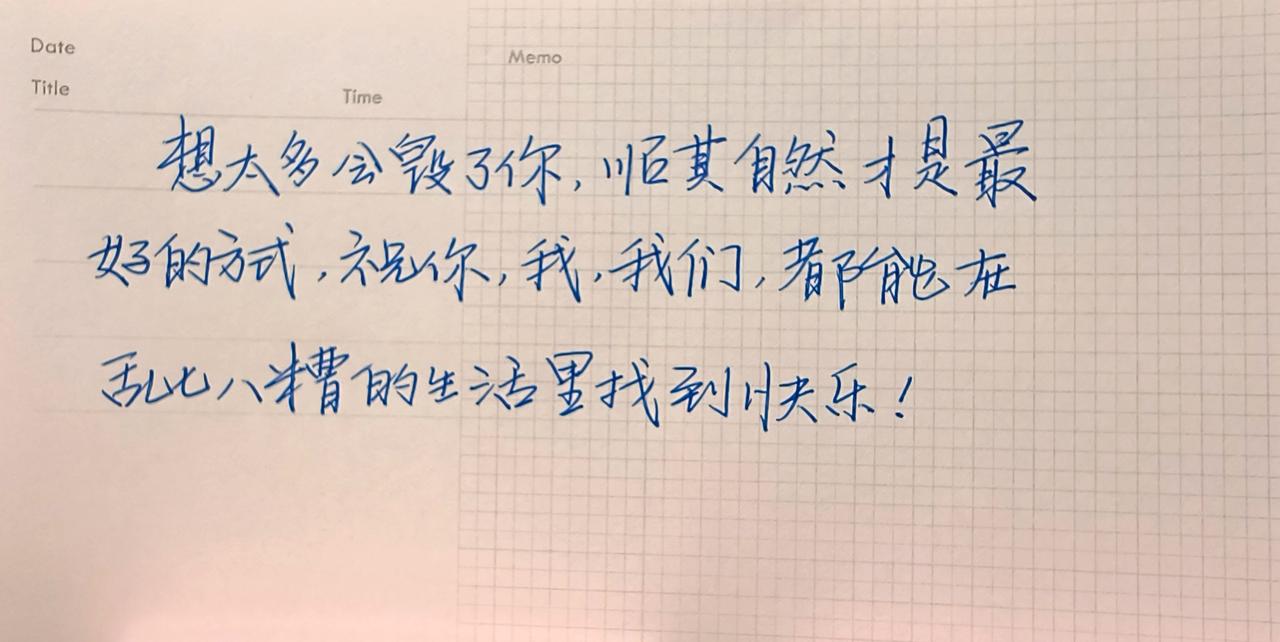 Date
Memo
Title
Time
想太多会毁了你,顺其自然才是最
好的方式,祝你,我,我们,都能在
乱七八糟的生活里找到快乐!